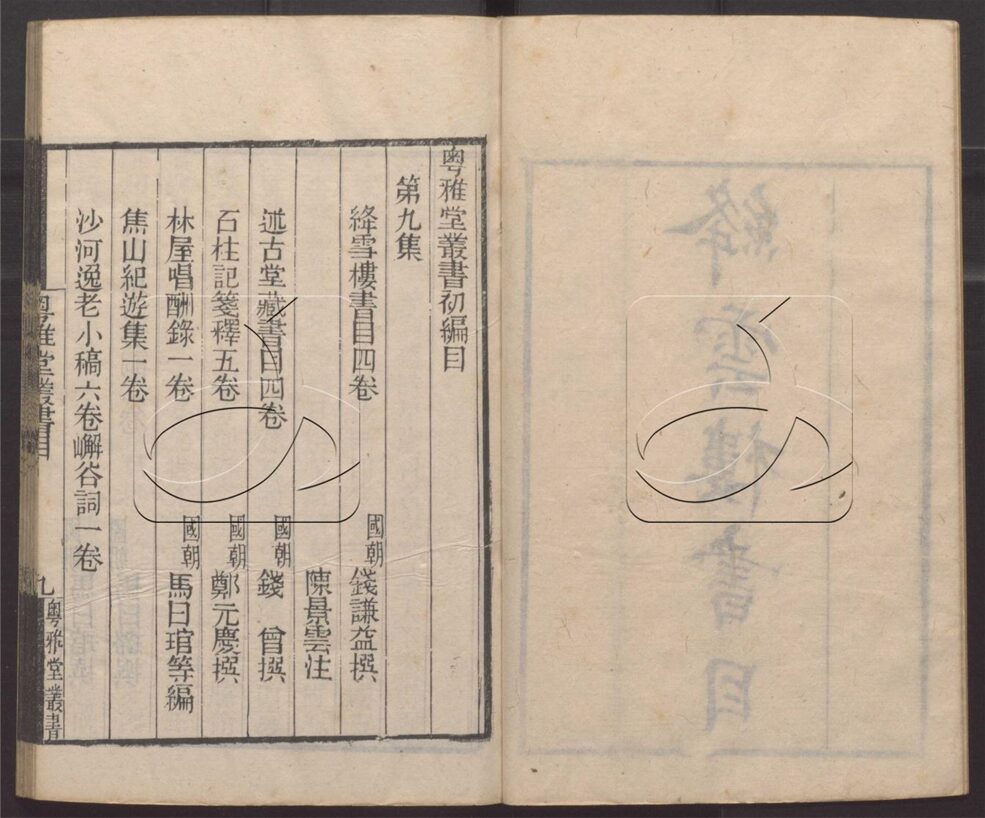 粵雅堂叢書初編目
第九集
絳雪樓書目四卷 國朝錢謙益撰
陳景雲注
述古堂藏書目四卷 國朝錢曾撰
石柱記箋釋五卷 國朝鄭元慶撰
林屋唱酬錄一卷 國朝馬曰琯等編
焦山紀遊集一卷
沙河逸老小稿六卷嶰谷詞一卷
粵雅堂叢書目
九
粵雅堂叢書